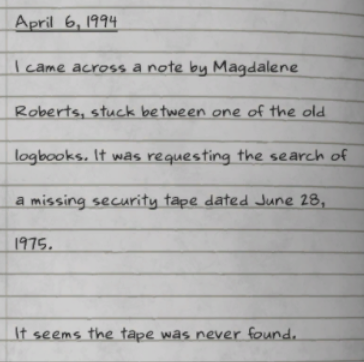 April 6, 1994
I came across a note by Magdalene
Roberts, stuck between one of the old
logbooks. It was requesting the search of
a missing security tape dated June 28,
1975.
It seems the tape was never found.